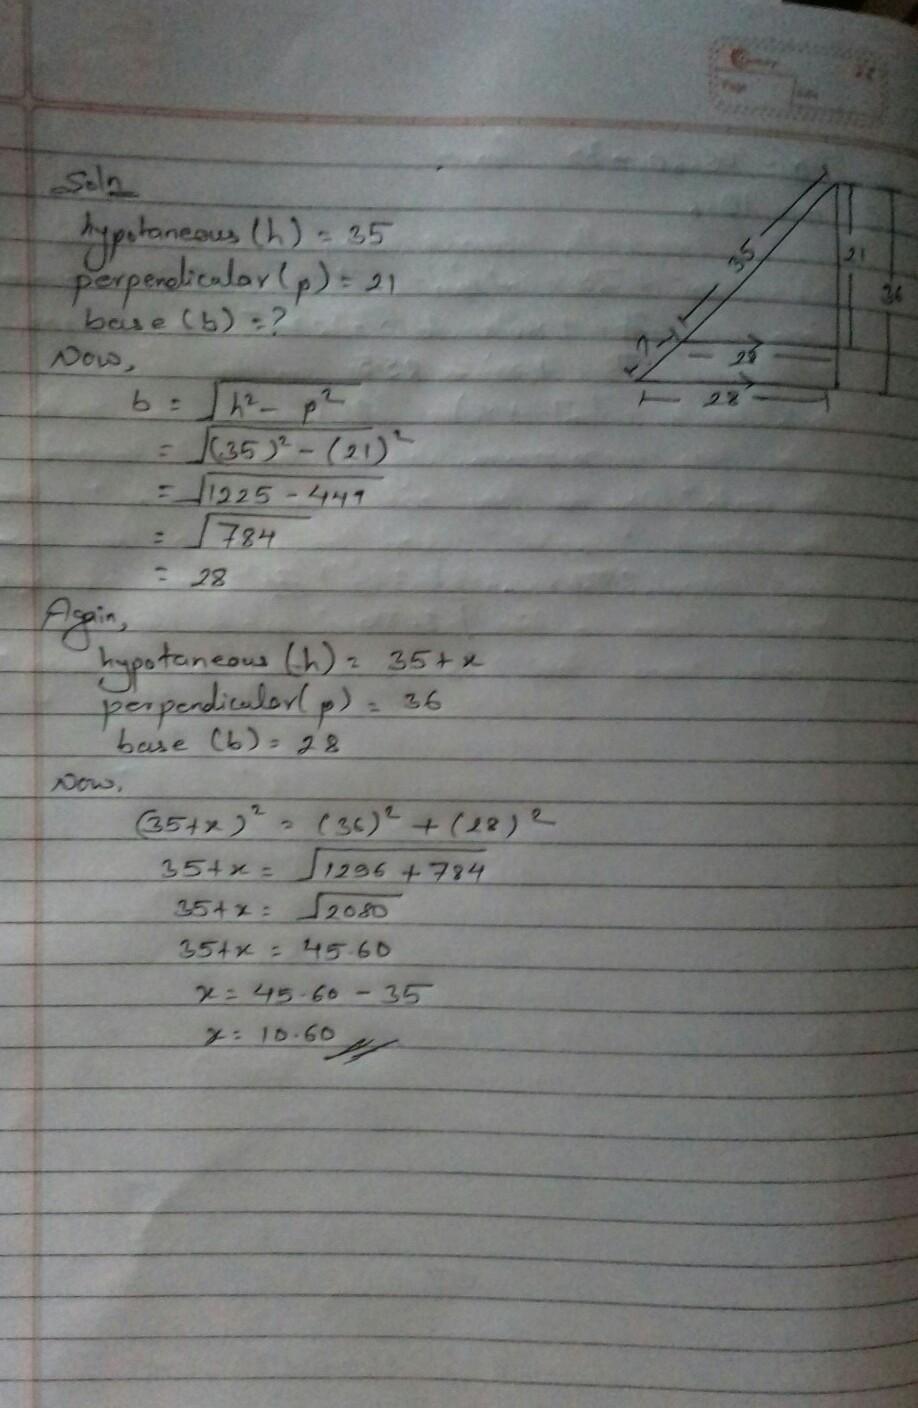 Soln
hypotaneous (h) = 35
perpendicular (p) = 21
base (b) = ?
Now,
b = √h² - p²
= √(35)² - (21)²
= √1225 - 441
= √784
= 28
Again,
hypotaneous (h) = 35+x
perpendicular (p) = 36
base (b) = 28
Now,
(35+x)² = (36)² + (28)²
35+x = √1296 + 784
35+x = √2080
35+x = 45.60
x = 45.60 - 35
x = 10.60
35
21
36
?
28
28